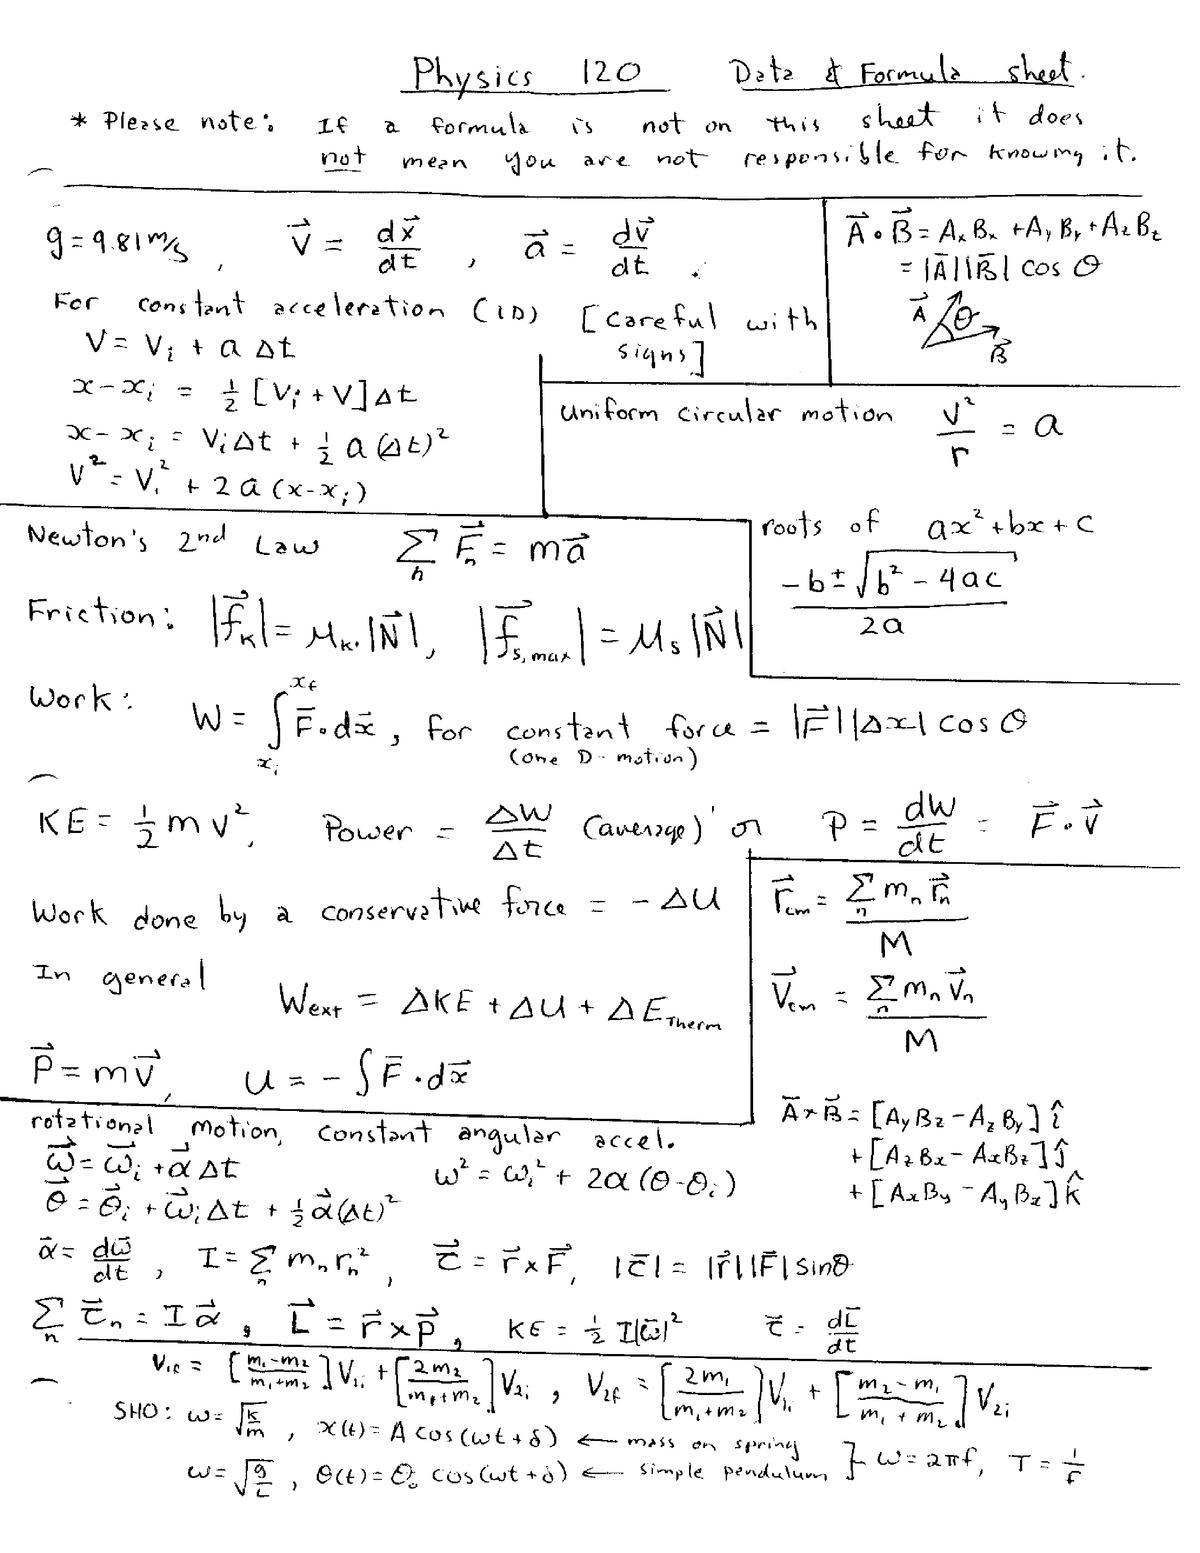 Physics 120 Data & Formula sheet.
* Please note: If a formula is not on this sheet it does
not mean you are not responsible for knowing it.
g = 9.81 m/s , v⃗ = dx⃗/dt , a⃗ = dv⃗/dt .
For constant acceleration (1D) [careful with signs]
v = v_i + a Δt
x - x_i = 1/2 [v_i + v] Δt
x - x_i = v_i Δt + 1/2 a (Δt)²
v² = v_i² + 2a (x - x_i)
A⃗ • B⃗ = A_x B_x + A_y B_y + A_z B_z
= |A⃗||B⃗| cos θ
A⃗ θ B⃗
uniform circular motion v²/r = a
roots of ax² + bx + c
(-b ± √(b² - 4ac)) / 2a
Newton's 2nd Law Σ_n F⃗_n = ma⃗
Friction: |f⃗_k| = μ_k |N⃗|, |f⃗_s,max| = μ_s |N⃗|
Work: W = ∫_{x_i}^{x_f} F⃗ • dx⃗, for constant force = |F⃗||Δx| cos θ
(one D-motion)
KE = 1/2 m v², Power = ΔW/Δt (average) or P = dW/dt = F⃗ • v⃗
Work done by a conservative force = - ΔU
In general
W_ext = ΔKE + ΔU + ΔE_Therm
P⃗ = mv⃗, U = - ∫ F⃗ • dx⃗
r⃗_cm = Σ_n m_n r⃗_n / M
V⃗_cm = Σ_n m_n v⃗_n / M
A⃗ × B⃗ = [A_y B_z - A_z B_y] î
+ [A_z B_x - A_x B_z] ĵ
+ [A_x B_y - A_y B_x] k̂
rotational motion, constant angular accel.
ω⃗ = ω⃗_i + α⃗ Δt ω² = ω_i² + 2α (θ - θ_i)
θ⃗ = θ⃗_i + ω⃗_i Δt + 1/2 α⃗ (Δt)²
α⃗ = dω⃗/dt , I = Σ_n m_n r_n² , τ⃗ = r⃗ × F⃗, |τ⃗| = |r⃗||F⃗| sin θ
Σ_n τ⃗_n = I α⃗ , L⃗ = r⃗ × p⃗ , KE = 1/2 I|ω⃗|² τ⃗ = dL⃗/dt
v_1f = [(m_1 - m_2)/(m_1 + m_2)] v_1i + [2m_2/(m_1 + m_2)] v_2i , v_2f = [2m_1/(m_1 + m_2)] v_1i + [(m_2 - m_1)/(m_1 + m_2)] v_2i
SHO: ω = √(k/m) , x(t) = A cos(ωt + δ) ← mass on spring
ω = √(g/L) , θ(t) = θ_0 cos(ωt + δ) ← simple pendulum } ω = 2πf, T = 1/f